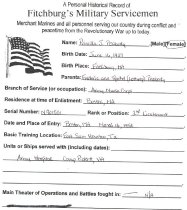 A Personal Historical Record of
Fitchburg's Military Servicemen
Merchant Marines and all personnel serving our country during conflict and
peacetime from the Revolutionary War up to today.
Name: Priscilla J. Peabody [Male] [Female]
Birth Date: June
Birth Place: Fitchburg, MA
Parents: Frederic and
Branch of Service (or occupation): Army Nurse Corps
Residence at time of Enlistment: Boston, MA
Serial Number: Rank or Position: 1st Lieutenant
Date and Place of Entry: Boston, MA March
Basic Training Location: Fort Sam Houston, TX
Units or Ships served with (including dates):
Army Hospital Camp Pickett, VA
Main Theater of Operations and Battles fought in: N/A